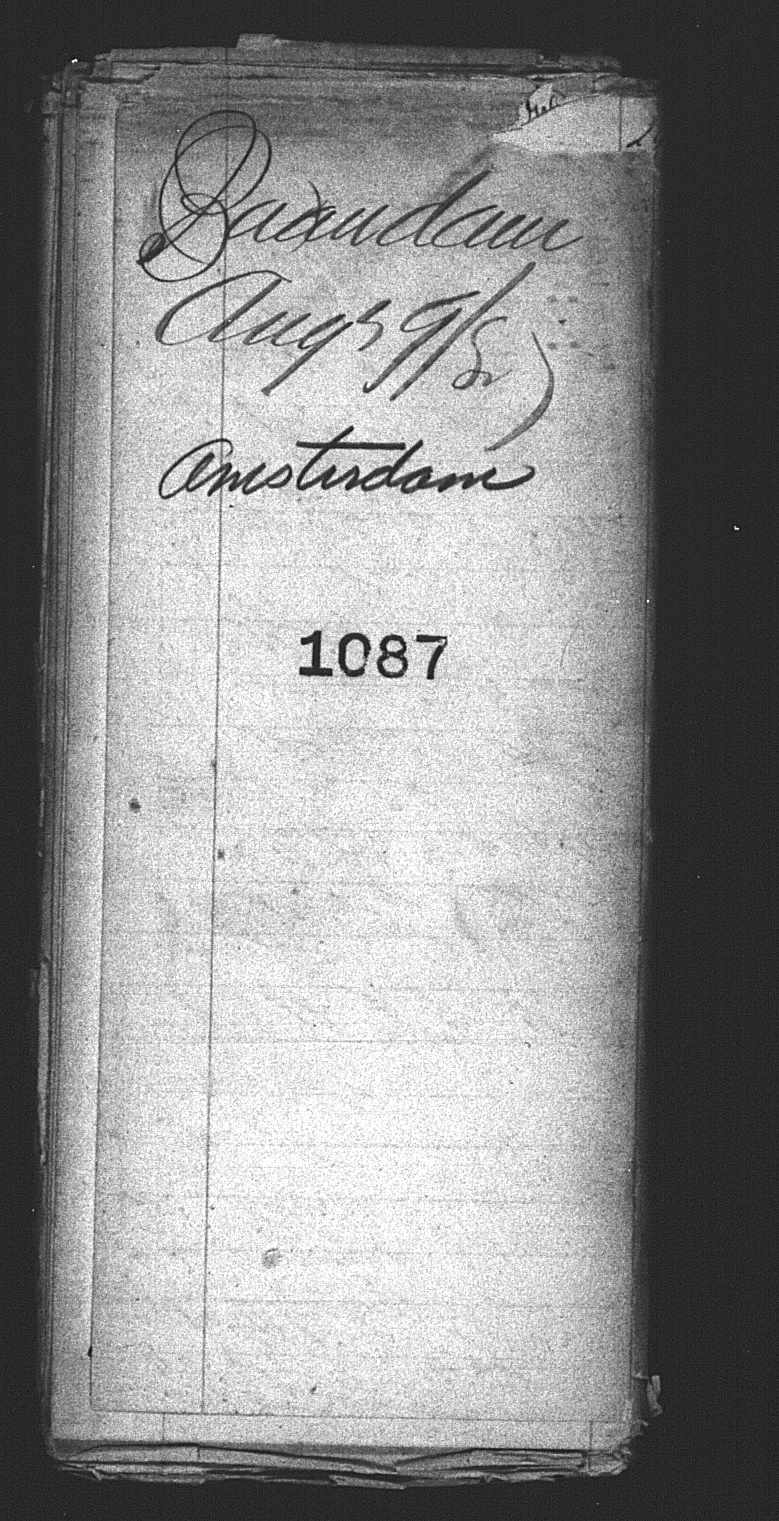 Zaandam
Aug 9/82
Amsterdam
1087